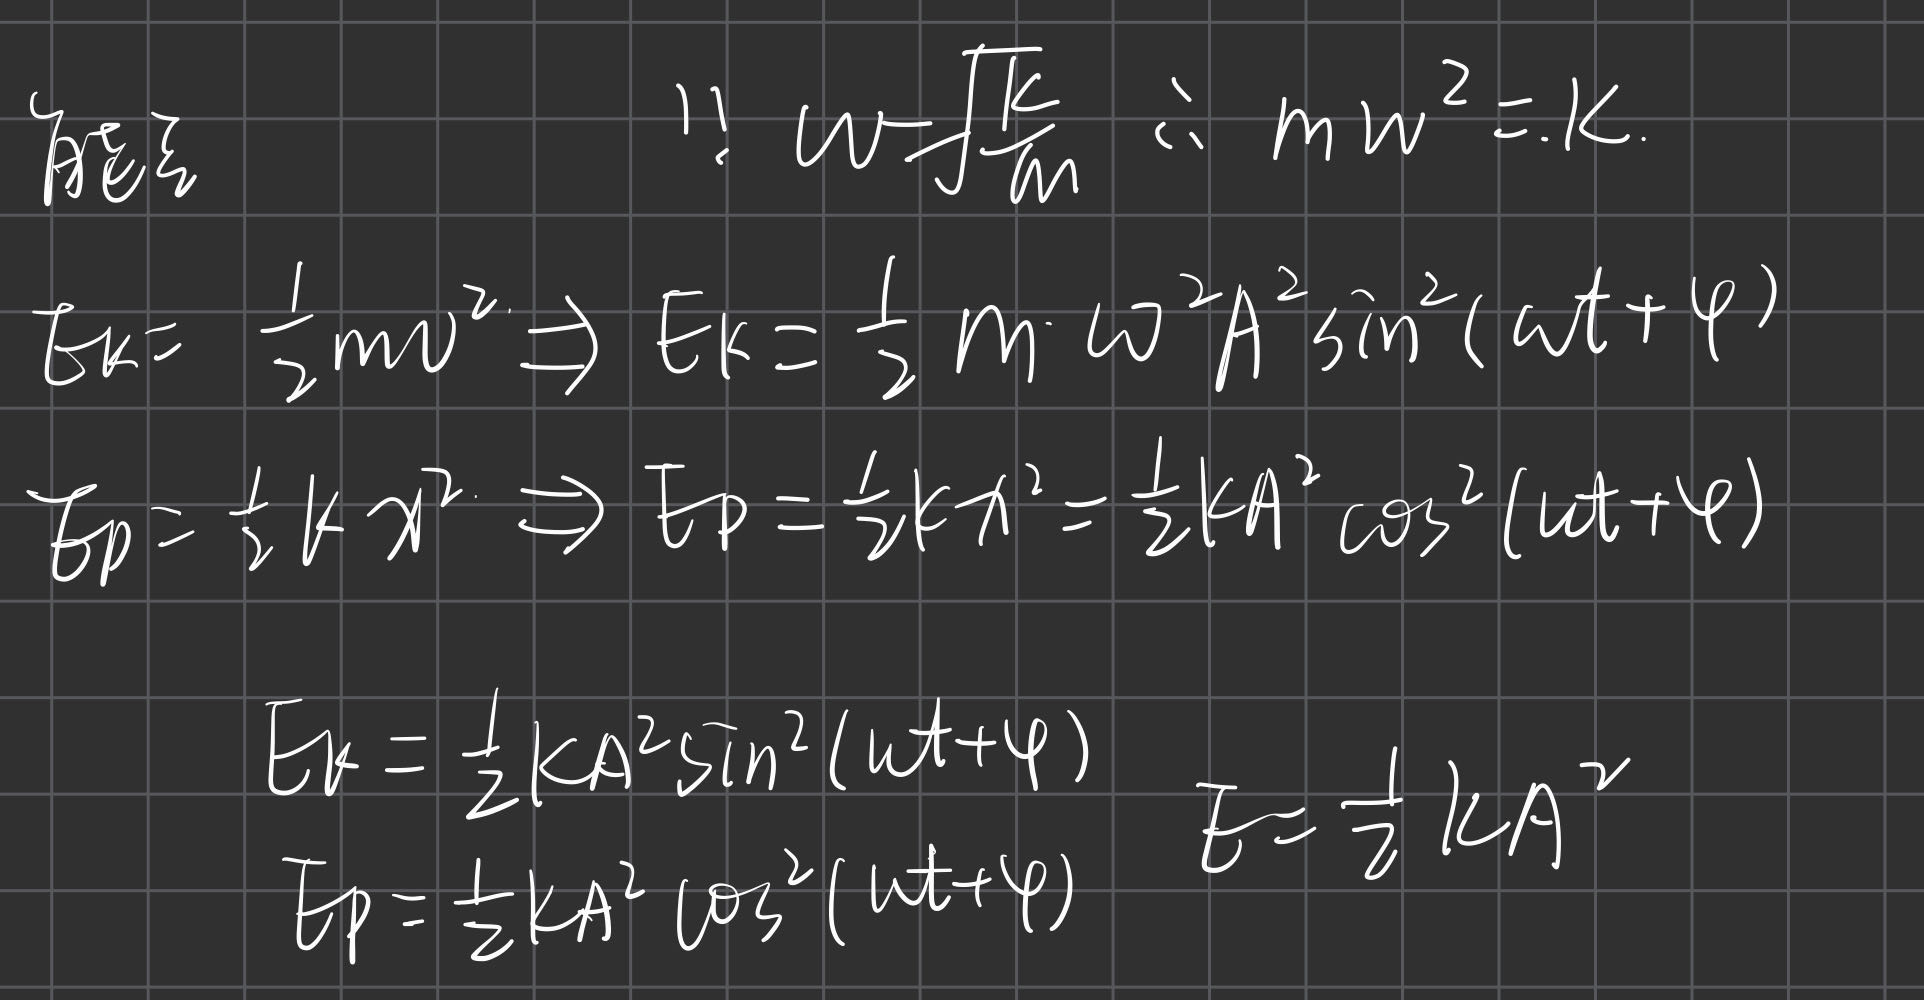 能量 ∵ w=√(k/m) ∴ mw²=k.
Ek= ½mv² ⇒ Ek=½m·ω²A²sin²(ωt+φ)
Ep=½kx² ⇒ Ep=½kx²=½kA²cos²(ωt+φ)
Ek=½kA²sin²(ωt+φ)
E=½kA²
Ep=½kA²cos²(ωt+φ)